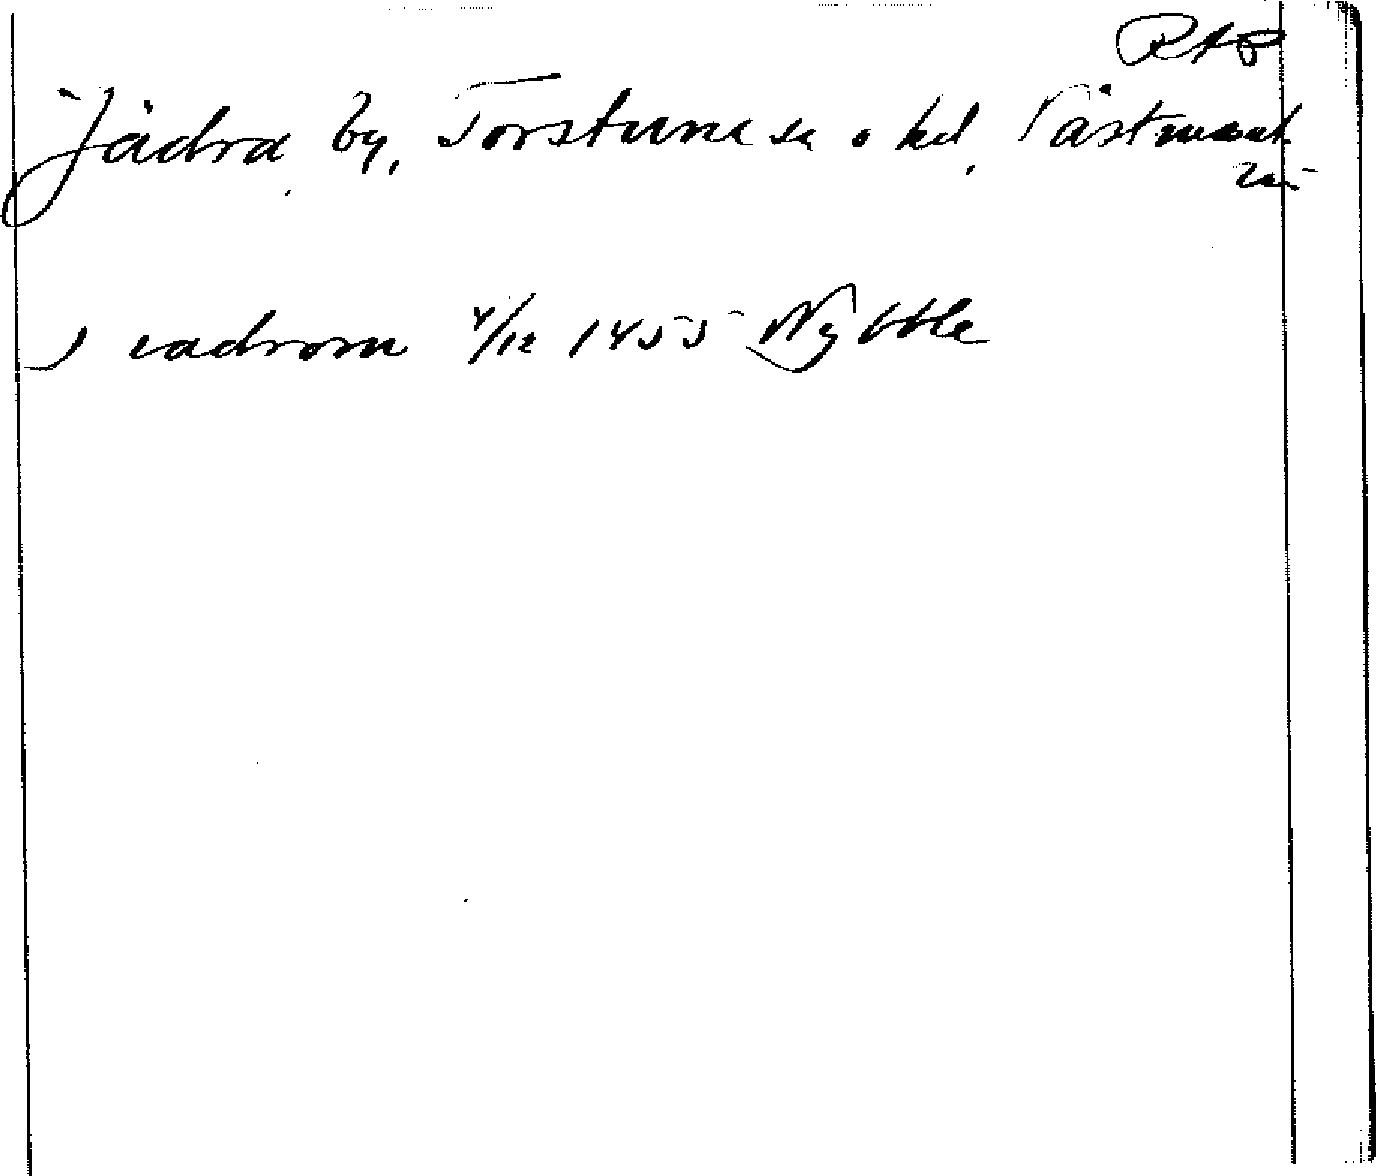 RAP
Jädra by, Torstuna sn o hd, Västmanl
län
J iadrom 4/12 1455 Nybble